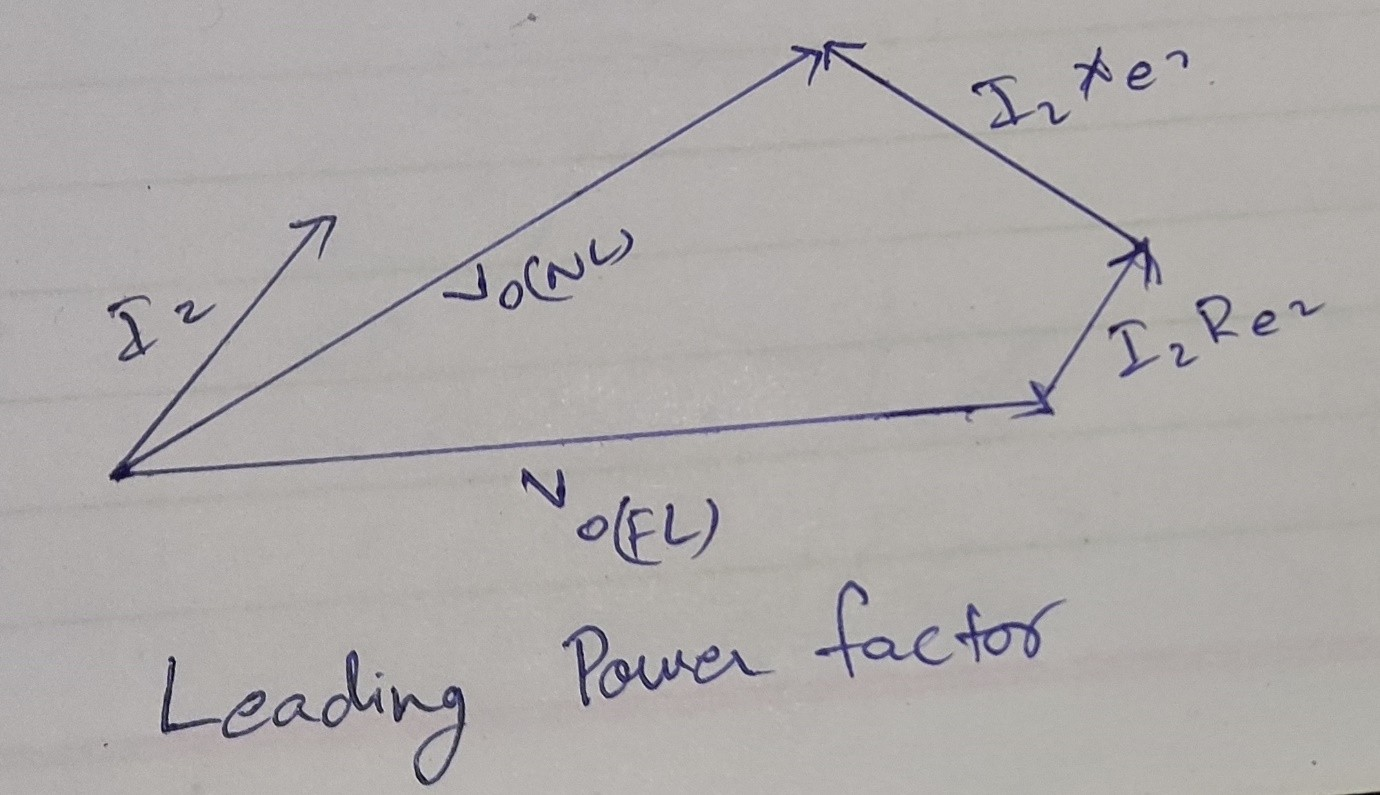 I₂Xe₂
I₂
V₀(NL)
I₂Re₂
V₀(FL)
Leading Power factor